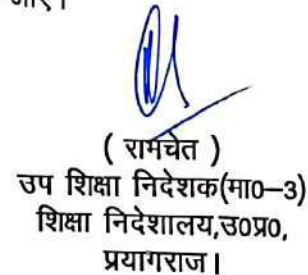 जाए।
( रामचेत )
उप शिक्षा निदेशक(मा०–3)
शिक्षा निदेशालय,उ०प्र०,
प्रयागराज।